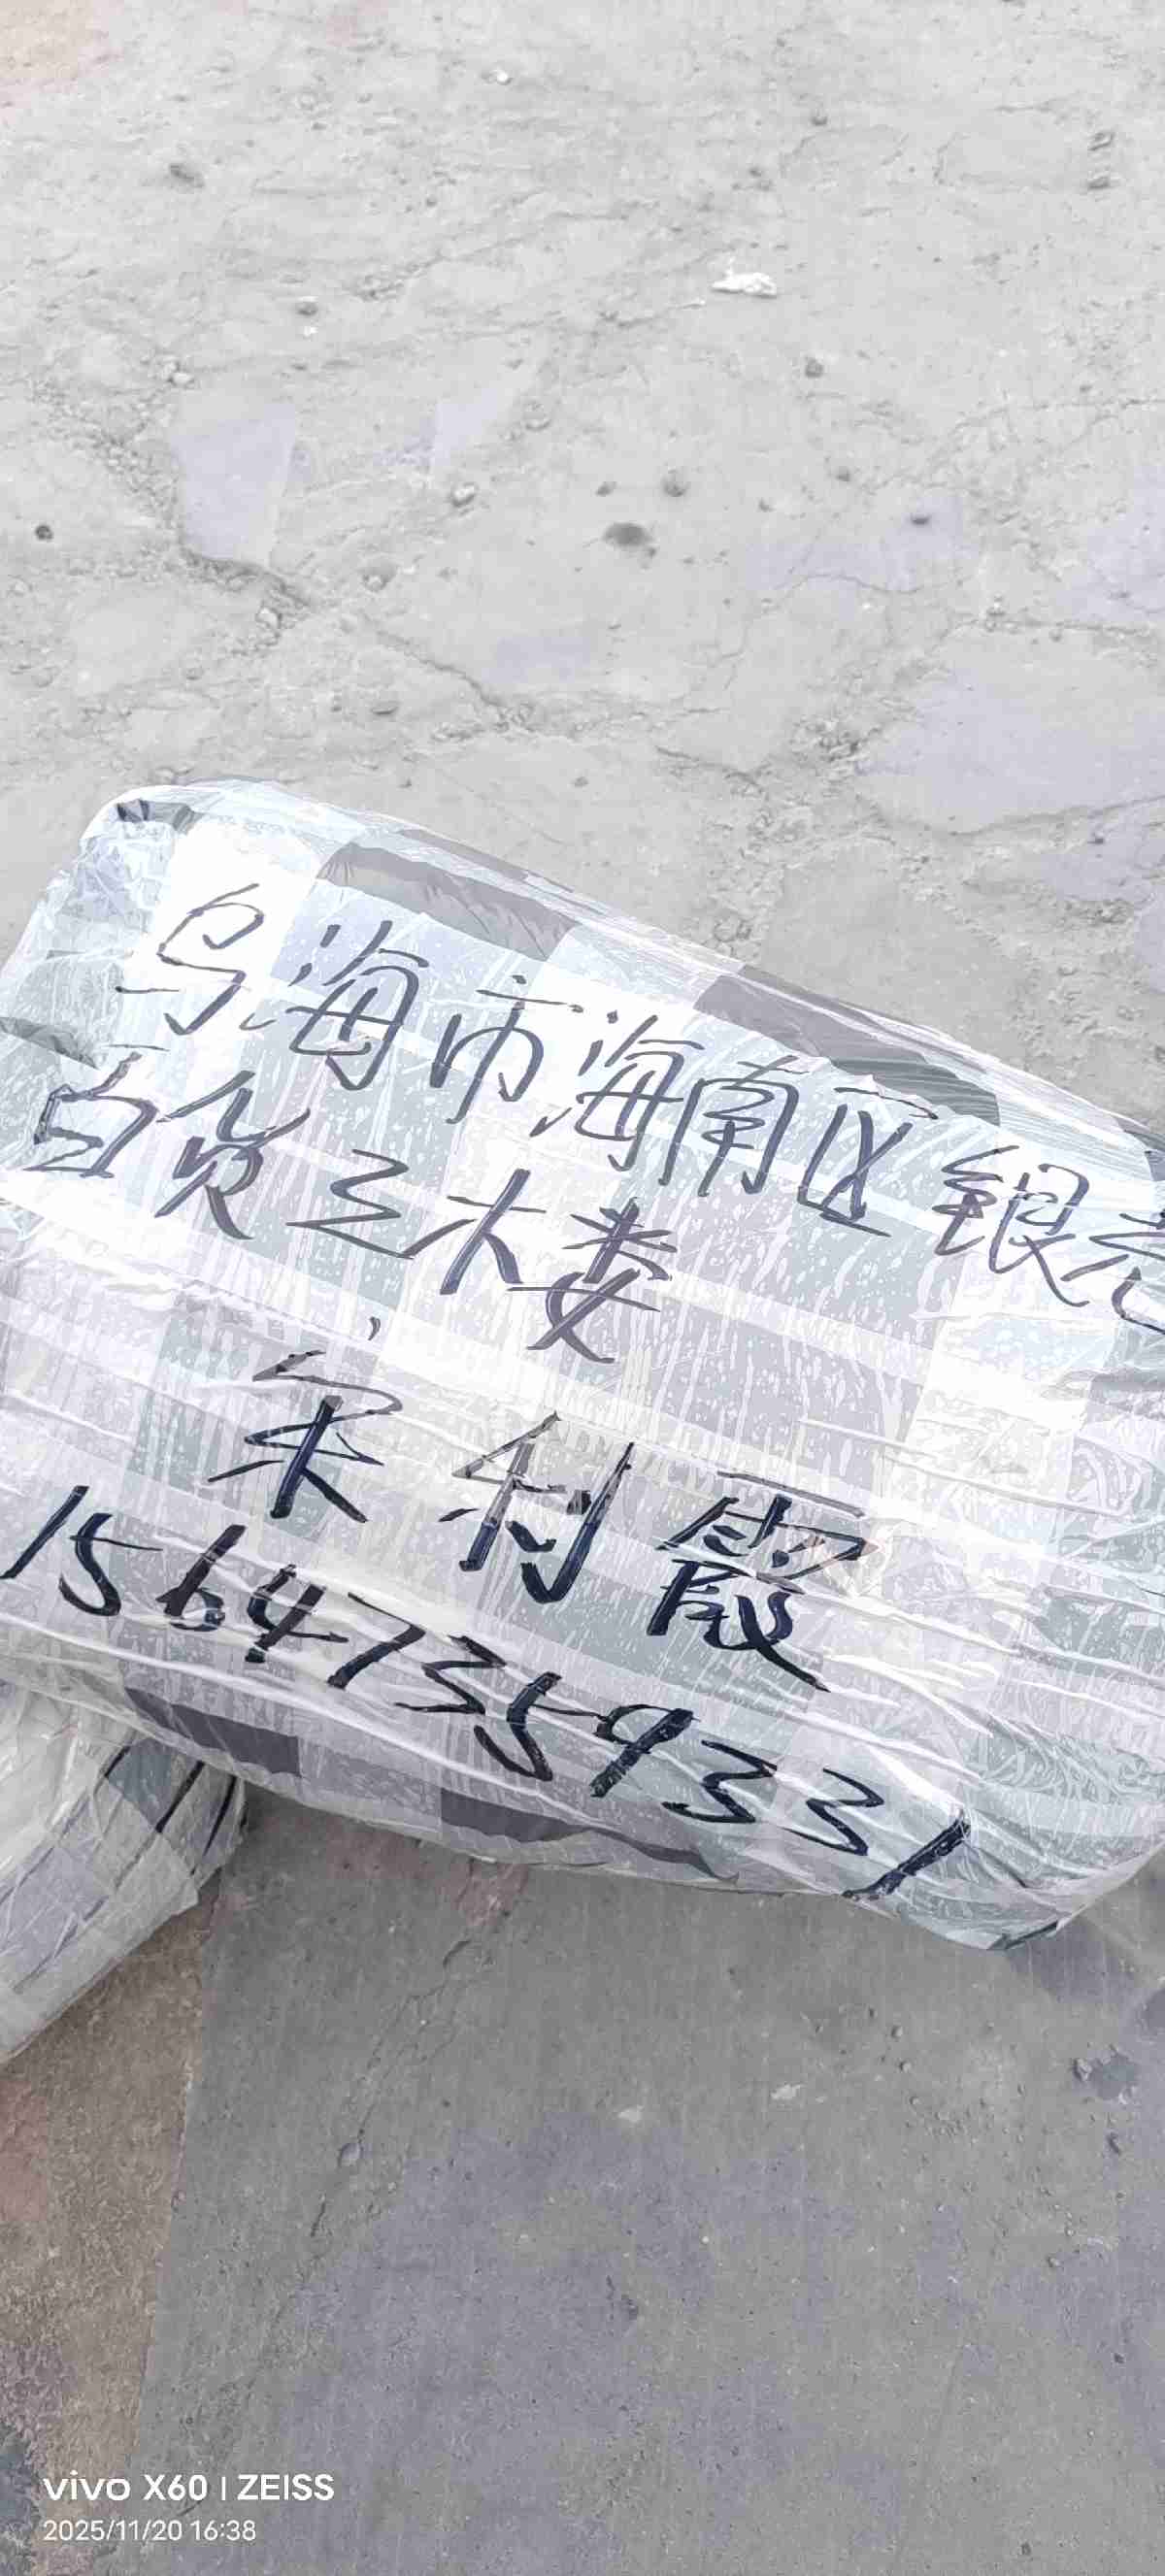 乌海市海南区银
百货三大娄
宋利霞
15647359331
vivo X60 | ZEISS
2025/11/20 16:38